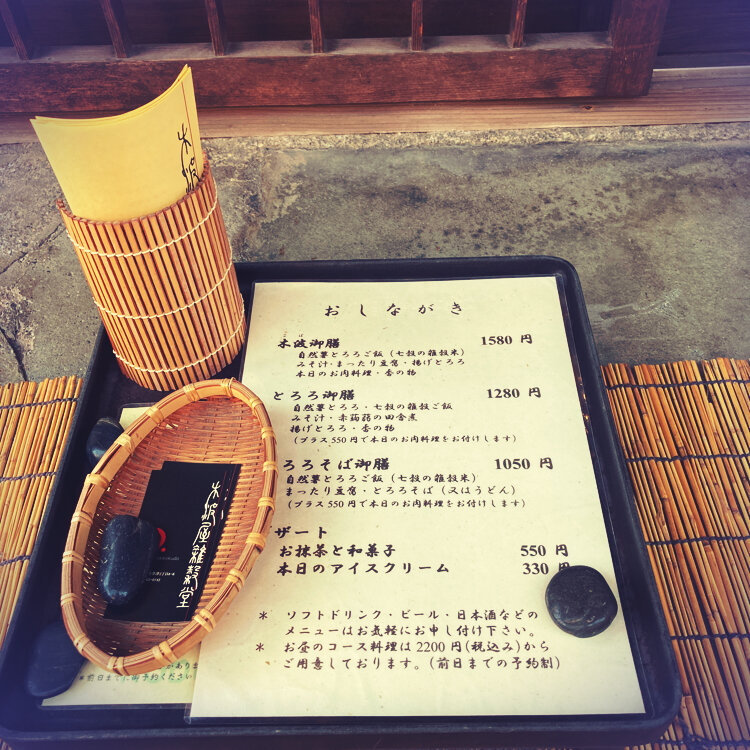 木波
おしながき
こば
木波御膳 1580 円
自然薯とろろご飯(七穀の雑穀米)
みそ汁・まったり豆腐・揚げとろろ
本日のお肉料理・香の物
とろろ御膳 1280 円
自然薯とろろ・七穀の雑穀ご飯
みそ汁・赤蒟蒻の田舎煮
揚げとろろ・香の物
(プラス550円で本日のお肉料理をお付けします)
ろろそば御膳 1050 円
自然薯とろろご飯(七穀の雑穀米)
まったり豆腐・とろろそば(又はうどん)
(プラス550円で本日のお肉料理をお付けします)
ザート
お抹茶と和菓子 550 円
本日のアイスクリーム 330
* ソフトドリンク・ビール・日本酒などの
メニューはお気軽にお申し付け下さい。
* お昼のコース料理は2200円(税込み)から
ご用意しております。(前日までの予約制)
木波屋雑穀堂
*前日までに御予約ください